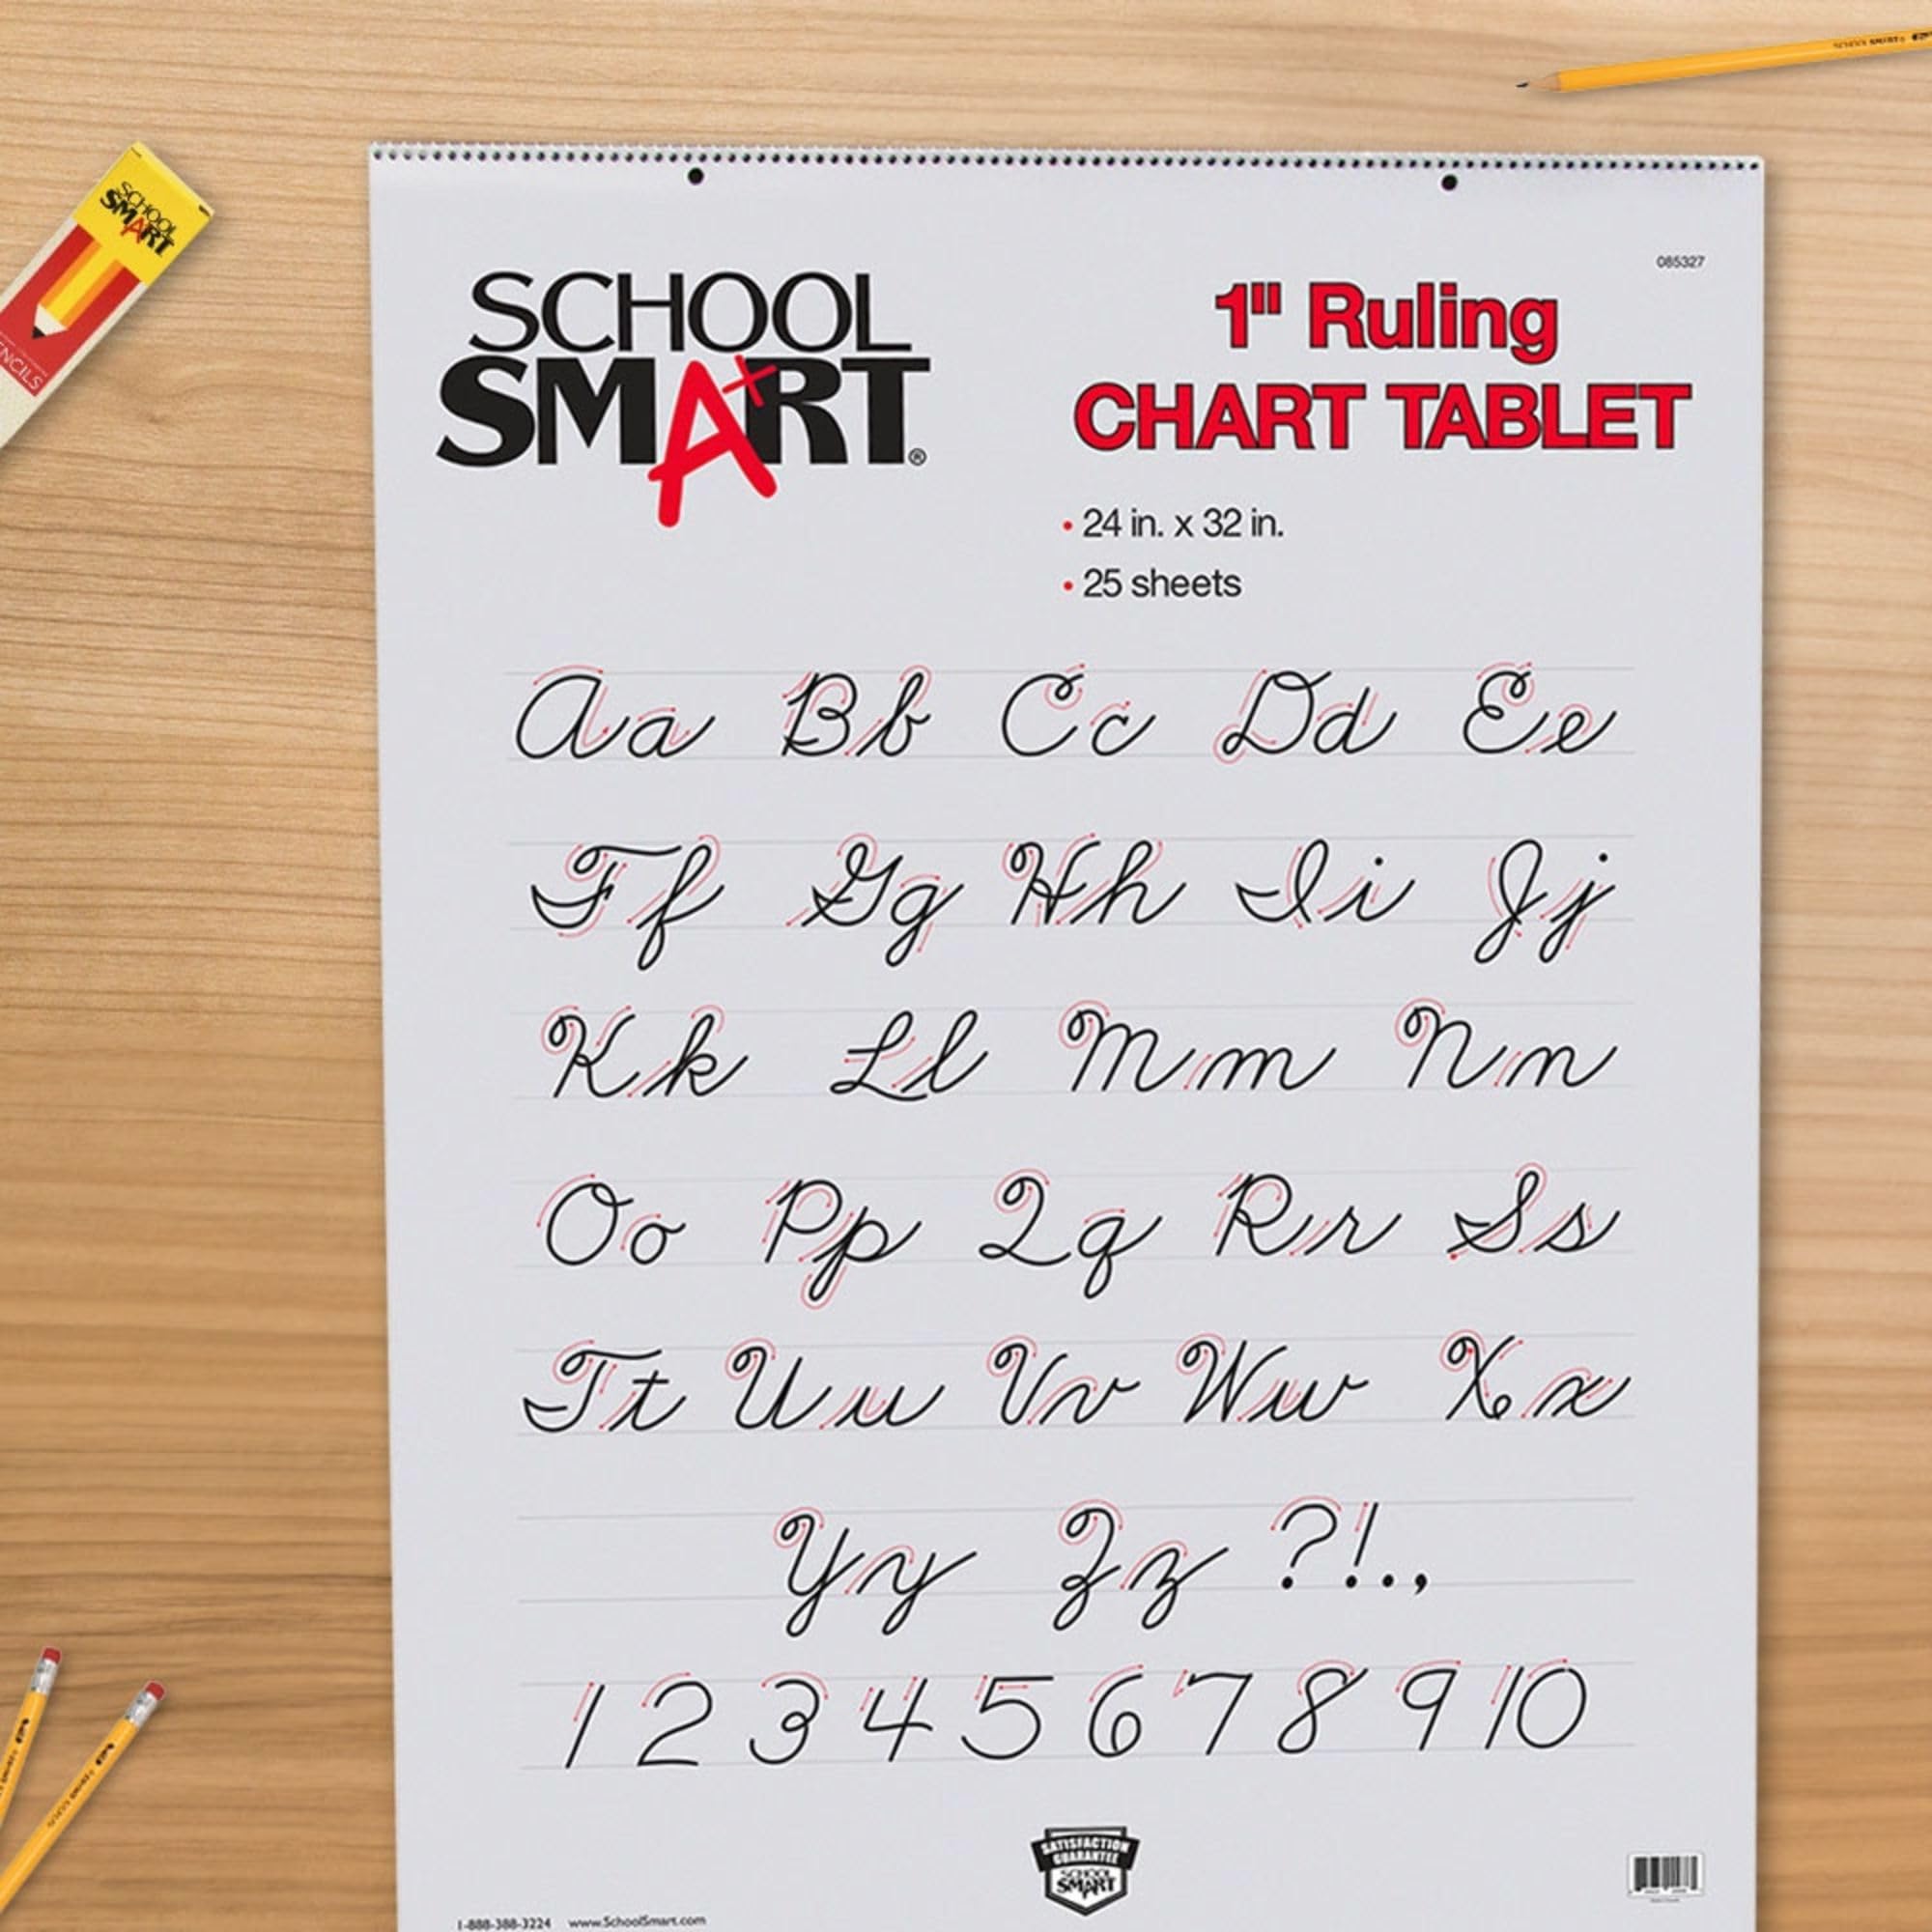 SCHOOL SMART
SCHOOL
SMART
NCILS
085327
SCHOOL
SMART®
1" Ruling
CHART TABLET
• 24 in. x 32 in.
• 25 sheets
Aa Bb Cc Dd Ee
Ff Gg Hh Ii Jj
Kk Ll Mm Nn
Oo Pp Qq Rr Ss
Tt Uu Vv Ww Xx
Yy Zz ?!.,
1 2 3 4 5 6 7 8 9 10
SATISFACTION
GUARANTEE
SCHOOL
SMART
1-888-388-3224 www.SchoolSmart.com